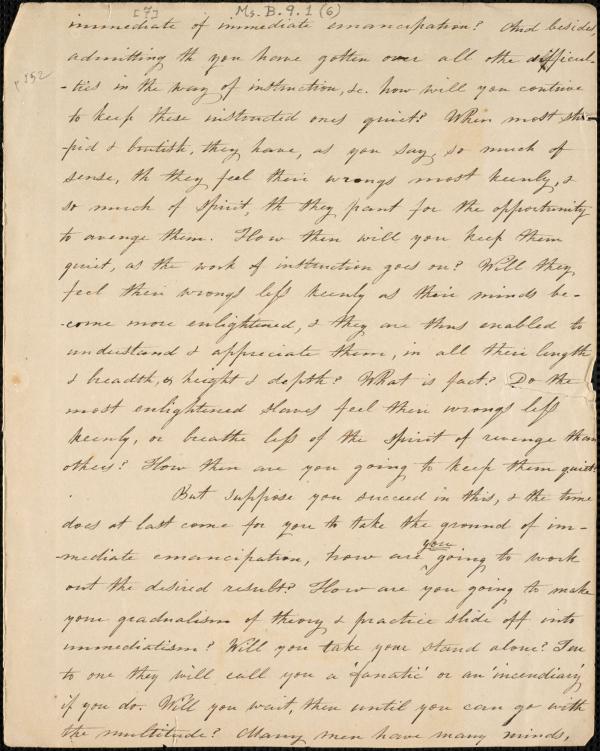 [7] Ms. B. 9. 1 (6)
immediate of immediate emancipation? And besides,
admitting th you have gotten over all othe difficul-
-ties in the way of instruction, &c. how will you contrive
p 152
to keep these instructed ones quiet? When most stu-
-pid & brutish, they have, as you say, so much of
sense, th they feel their wrongs most keenly, &
so much of spirit, th they pant for the opportunity
to avenge them. How then will you keep them
quiet, as the work of instruction goes on? Will they
feel their wrongs less keenly as their minds be-
-come more enlightened, & they are thus enabled to
understand & appreciate them, in all their length
& breadth, & height & depth? What is fact? Do the
most enlightened slaves feel their wrongs less
keenly, or breathe less of the spirit of revenge than
others? How then are you going to keep them quiet?
But suppose you succeed in this, & the time
does at last come for you to take the ground of im-
-mediate emancipation, how are you going to work
out the desired result? How are you going to make
your gradualism of theory & practice slide off into
immediatism? Will you take your stand alone? Ten
to one they will call you a 'fanatic' or an 'incendiary'
if you do. Will you wait, then until you can go with
the multitude? Many men have many minds,